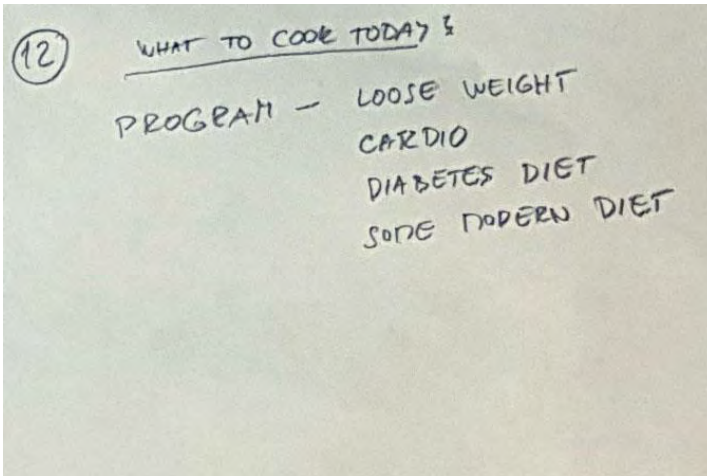 12 WHAT TO COOK TODAY ?
PROGRAM - LOOSE WEIGHT
CARDIO
DIABETES DIET
SOME MODERN DIET